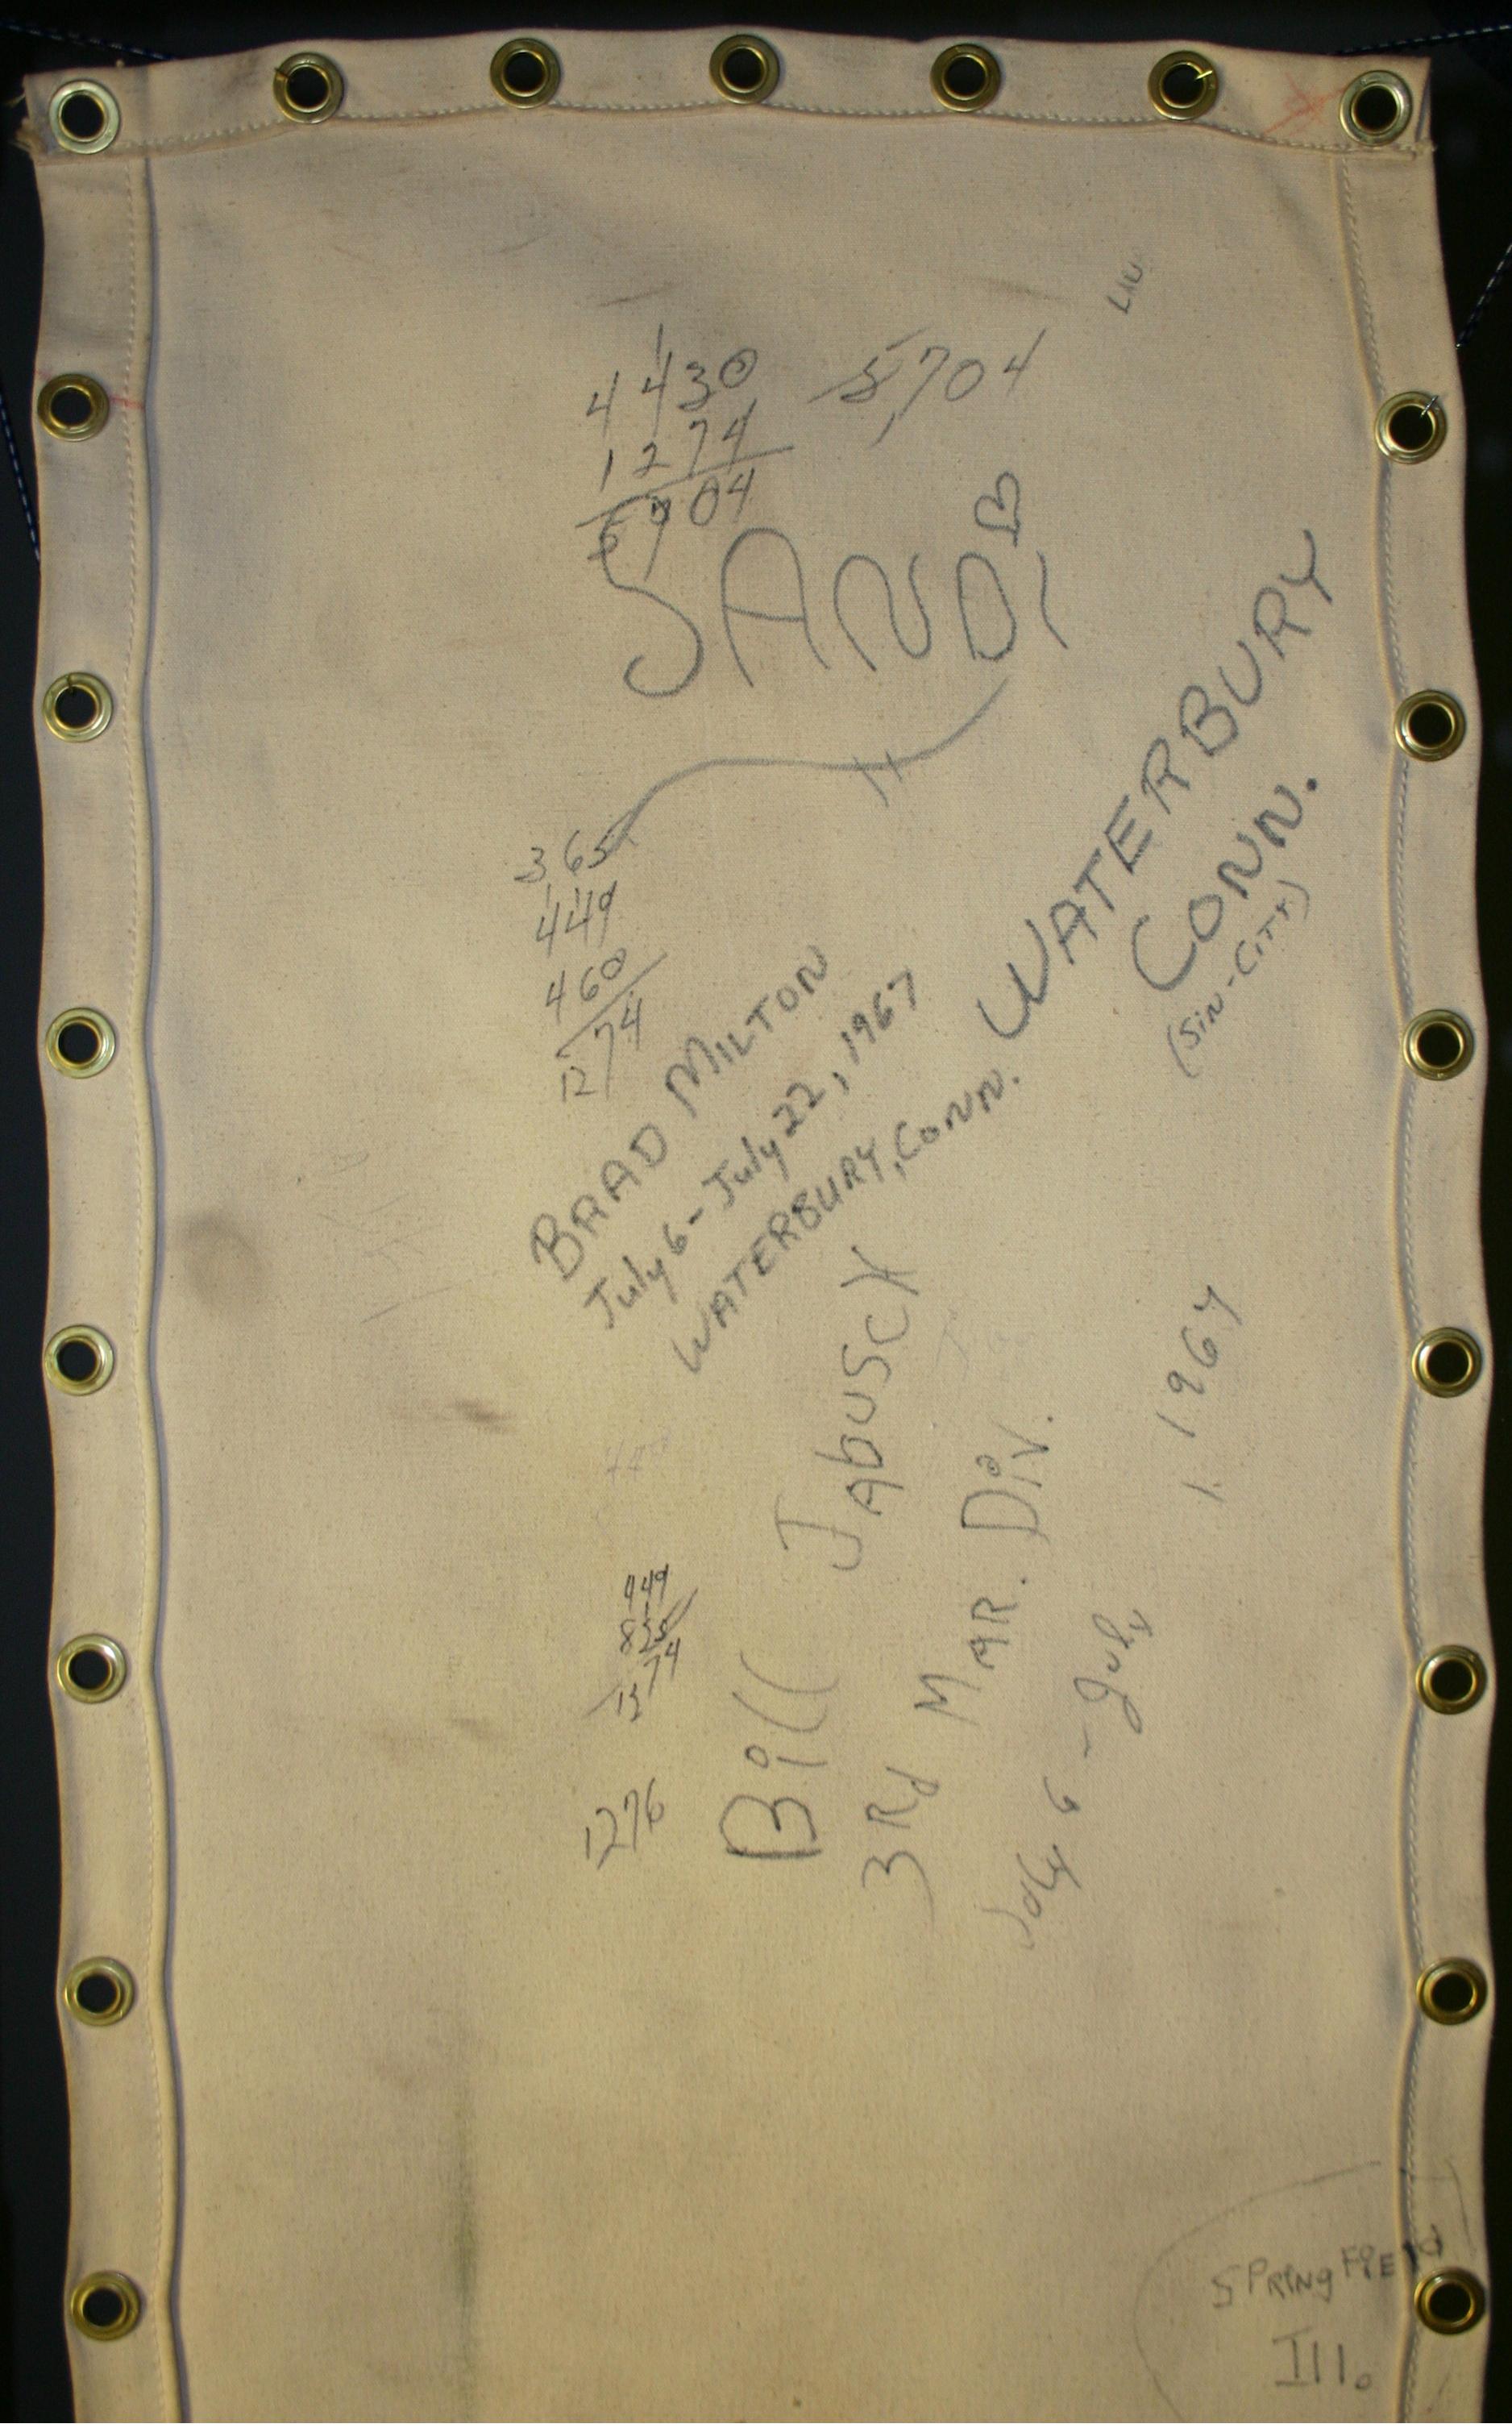 4430
1274
5704
5,704
SANDi
365
449
460
1274
BRAD MILTON
July 6 - July 22, 1967
WATERBURY, CONN.
WATERBURY
CONN.
(SiN-CiTY)
Bill JAbusch
3Rd MAR. Div.
July 6 - July
1967
449
825
1274
1276
SPRiNgFiEld
Ill.